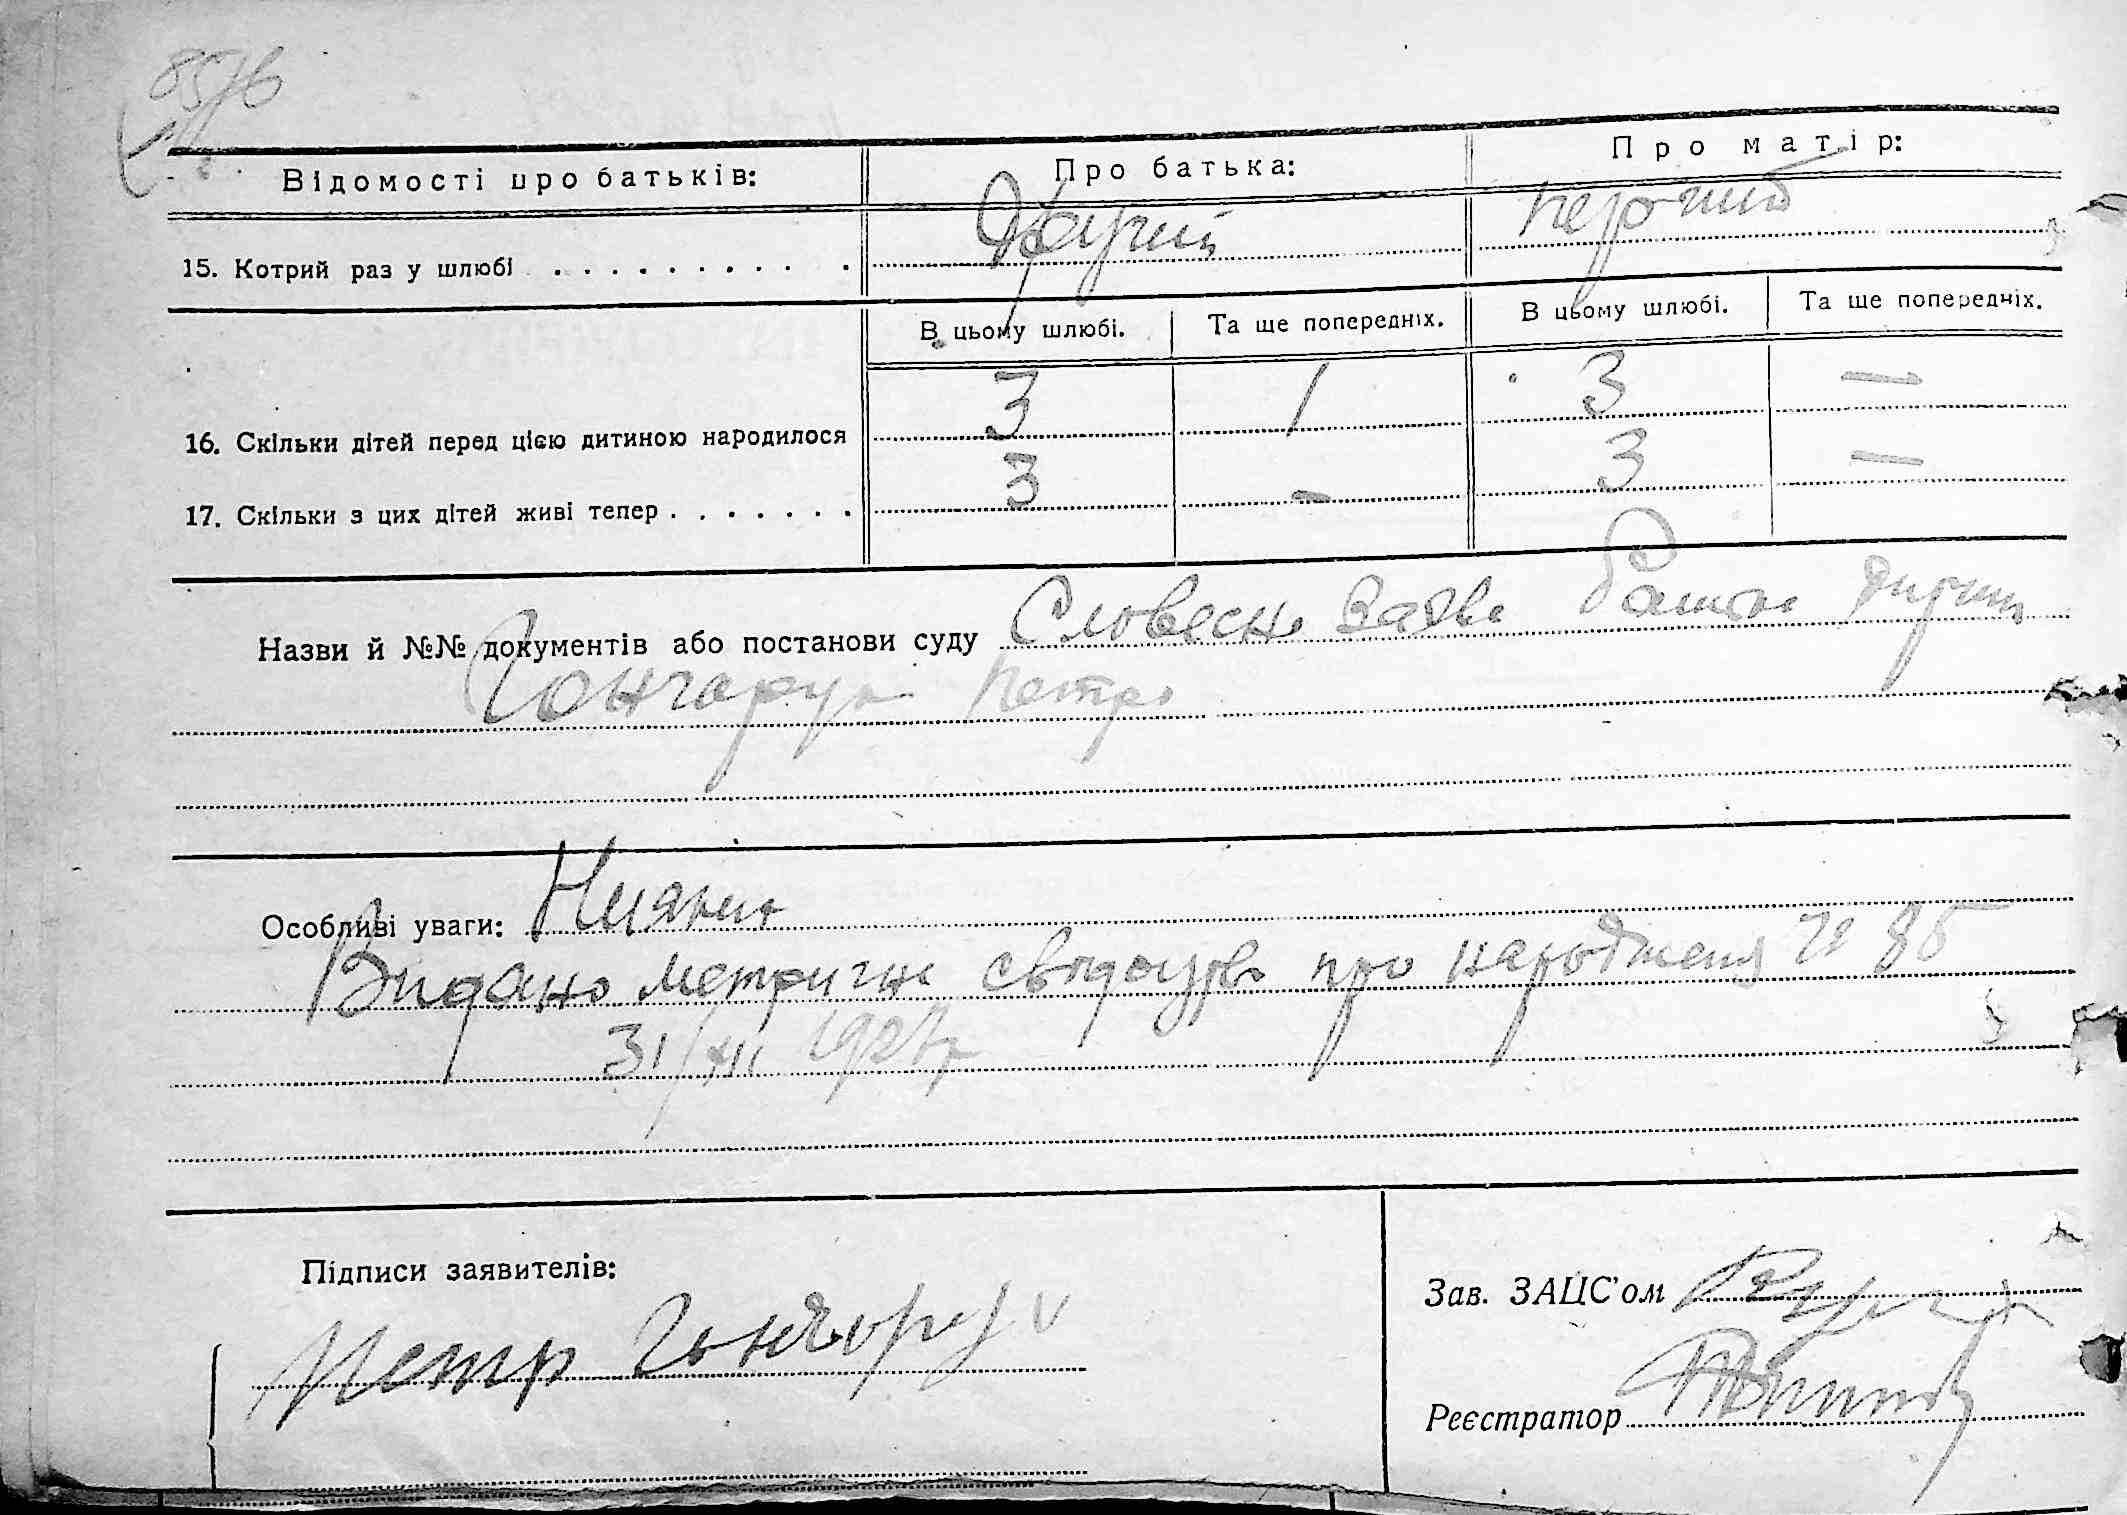 Відомості про батьків:
Про батька:
Про матір:
15. Котрий раз у шлюбі
Другий
перший
В цьому шлюбі.
Та ще попередніх.
В цьому шлюбі.
Та ще попередніх.
16. Скільки дітей перед цією дитиною народилося
3
1
3
—
17. Скільки з цих дітей живі тепер
3
—
3
—
Назви й №№ документів або постанови суду Словесна заява батька дитини
Гончарук Петро
Особливі уваги:
Видано метричне свідоцтво про народження № 85
31/XII 1927р
Підписи заявителів:
Зав. ЗАЦС'ом
Петр Гончарук
Реєстратор